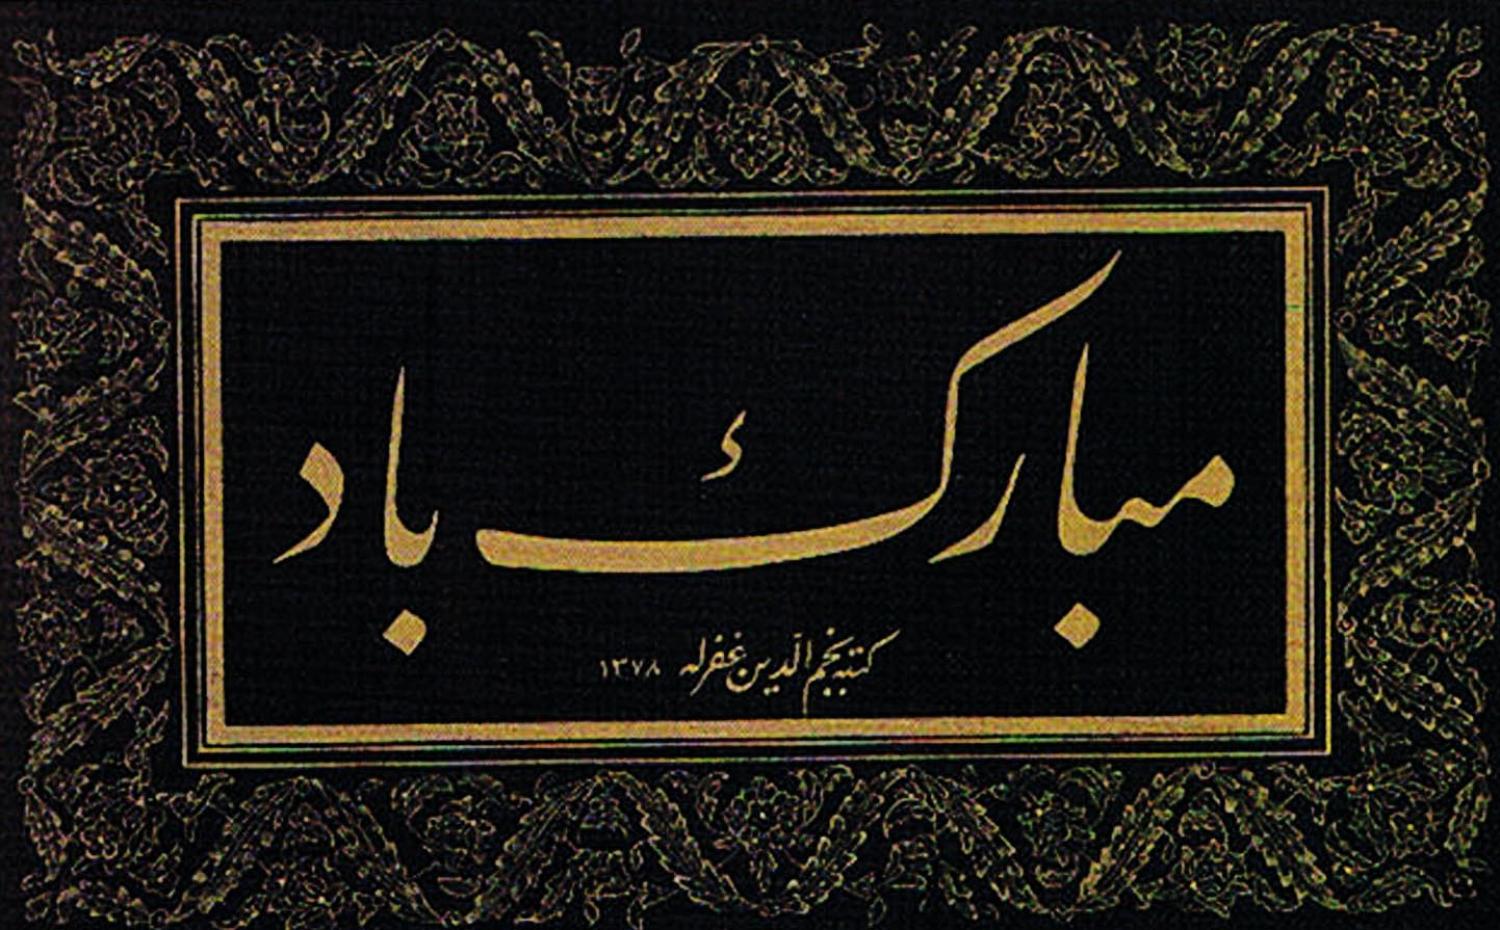 مبارك باد
كتبه نجم الدین غفرله ۱۳۷۸